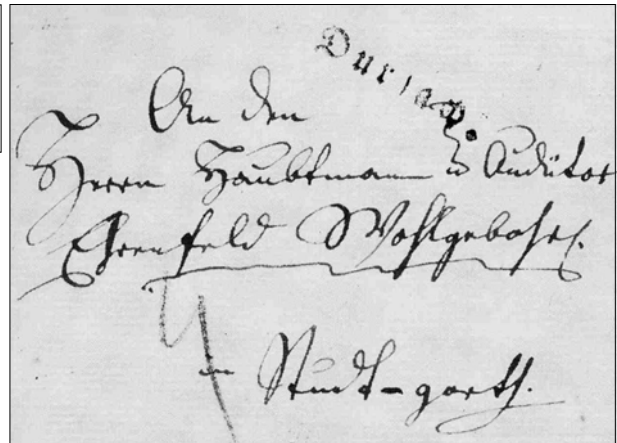 Durlach.
An den
Herrn Haubtmann u Auditor
Ehrenfeld Wohlgebohr.
in Studt-garth.